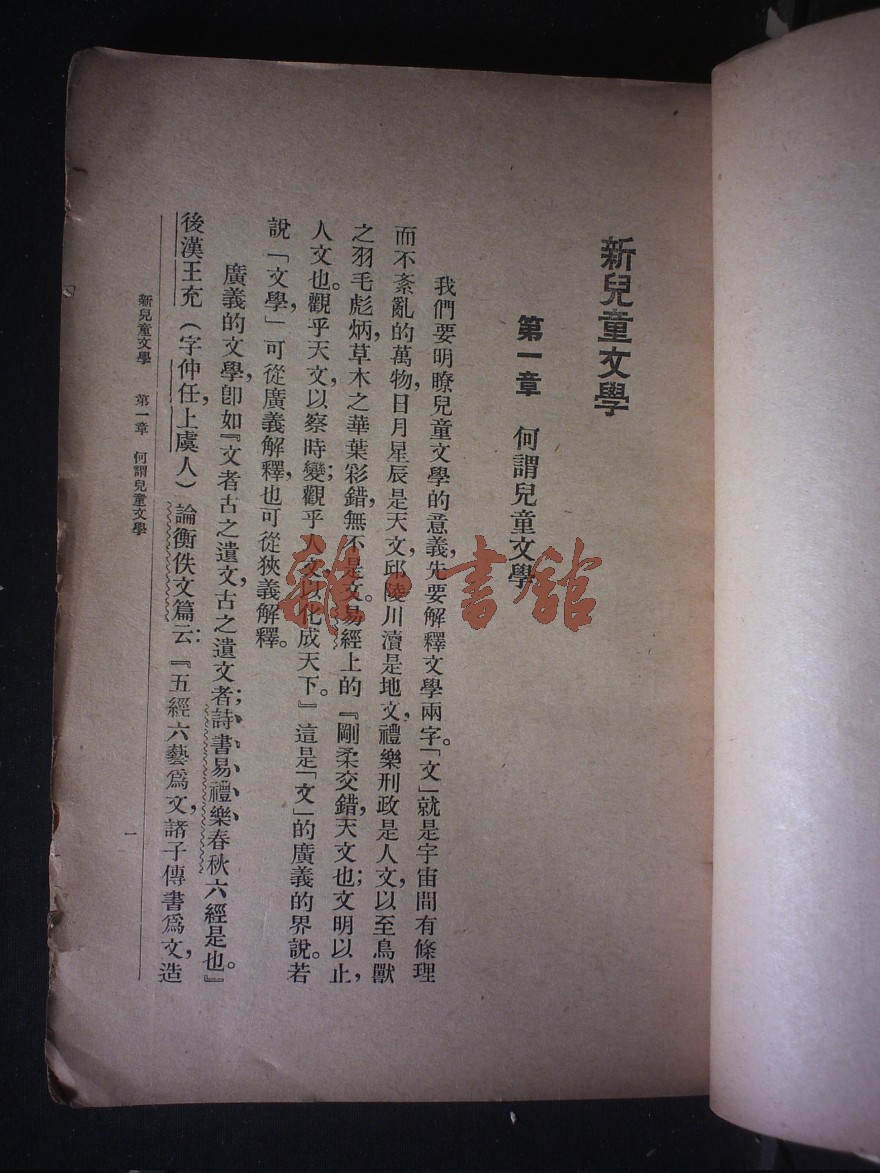 新兒童文學
第一章　何謂兒童文學
我們要明瞭兒童文學的意義，先要解釋文學兩字。「文」就是宇宙間有條理
而不紊亂的萬物，日月星辰是天文，邱陵川瀆是地文，禮樂刑政是人文，以至鳥獸
之羽毛彪炳，草木之華葉彩錯，無不是文。易經上的『剛柔交錯，天文也；文明以止，
人文也。觀乎天文，以察時變；觀乎人文，以化成天下。』這是「文」的廣義的界說。若
說「文學」，可從廣義解釋，也可從狹義解釋。
廣義的文學，卽如『文者古之遺文，古之遺文者；詩、書、易、禮、樂、春秋六經是也。』
後漢王充（字仲任，上虞人）論衡佚文篇云：『五經六藝爲文，諸子傳書爲文，造
新兒童文學　第一章　何謂兒童文學
一
雜·書館